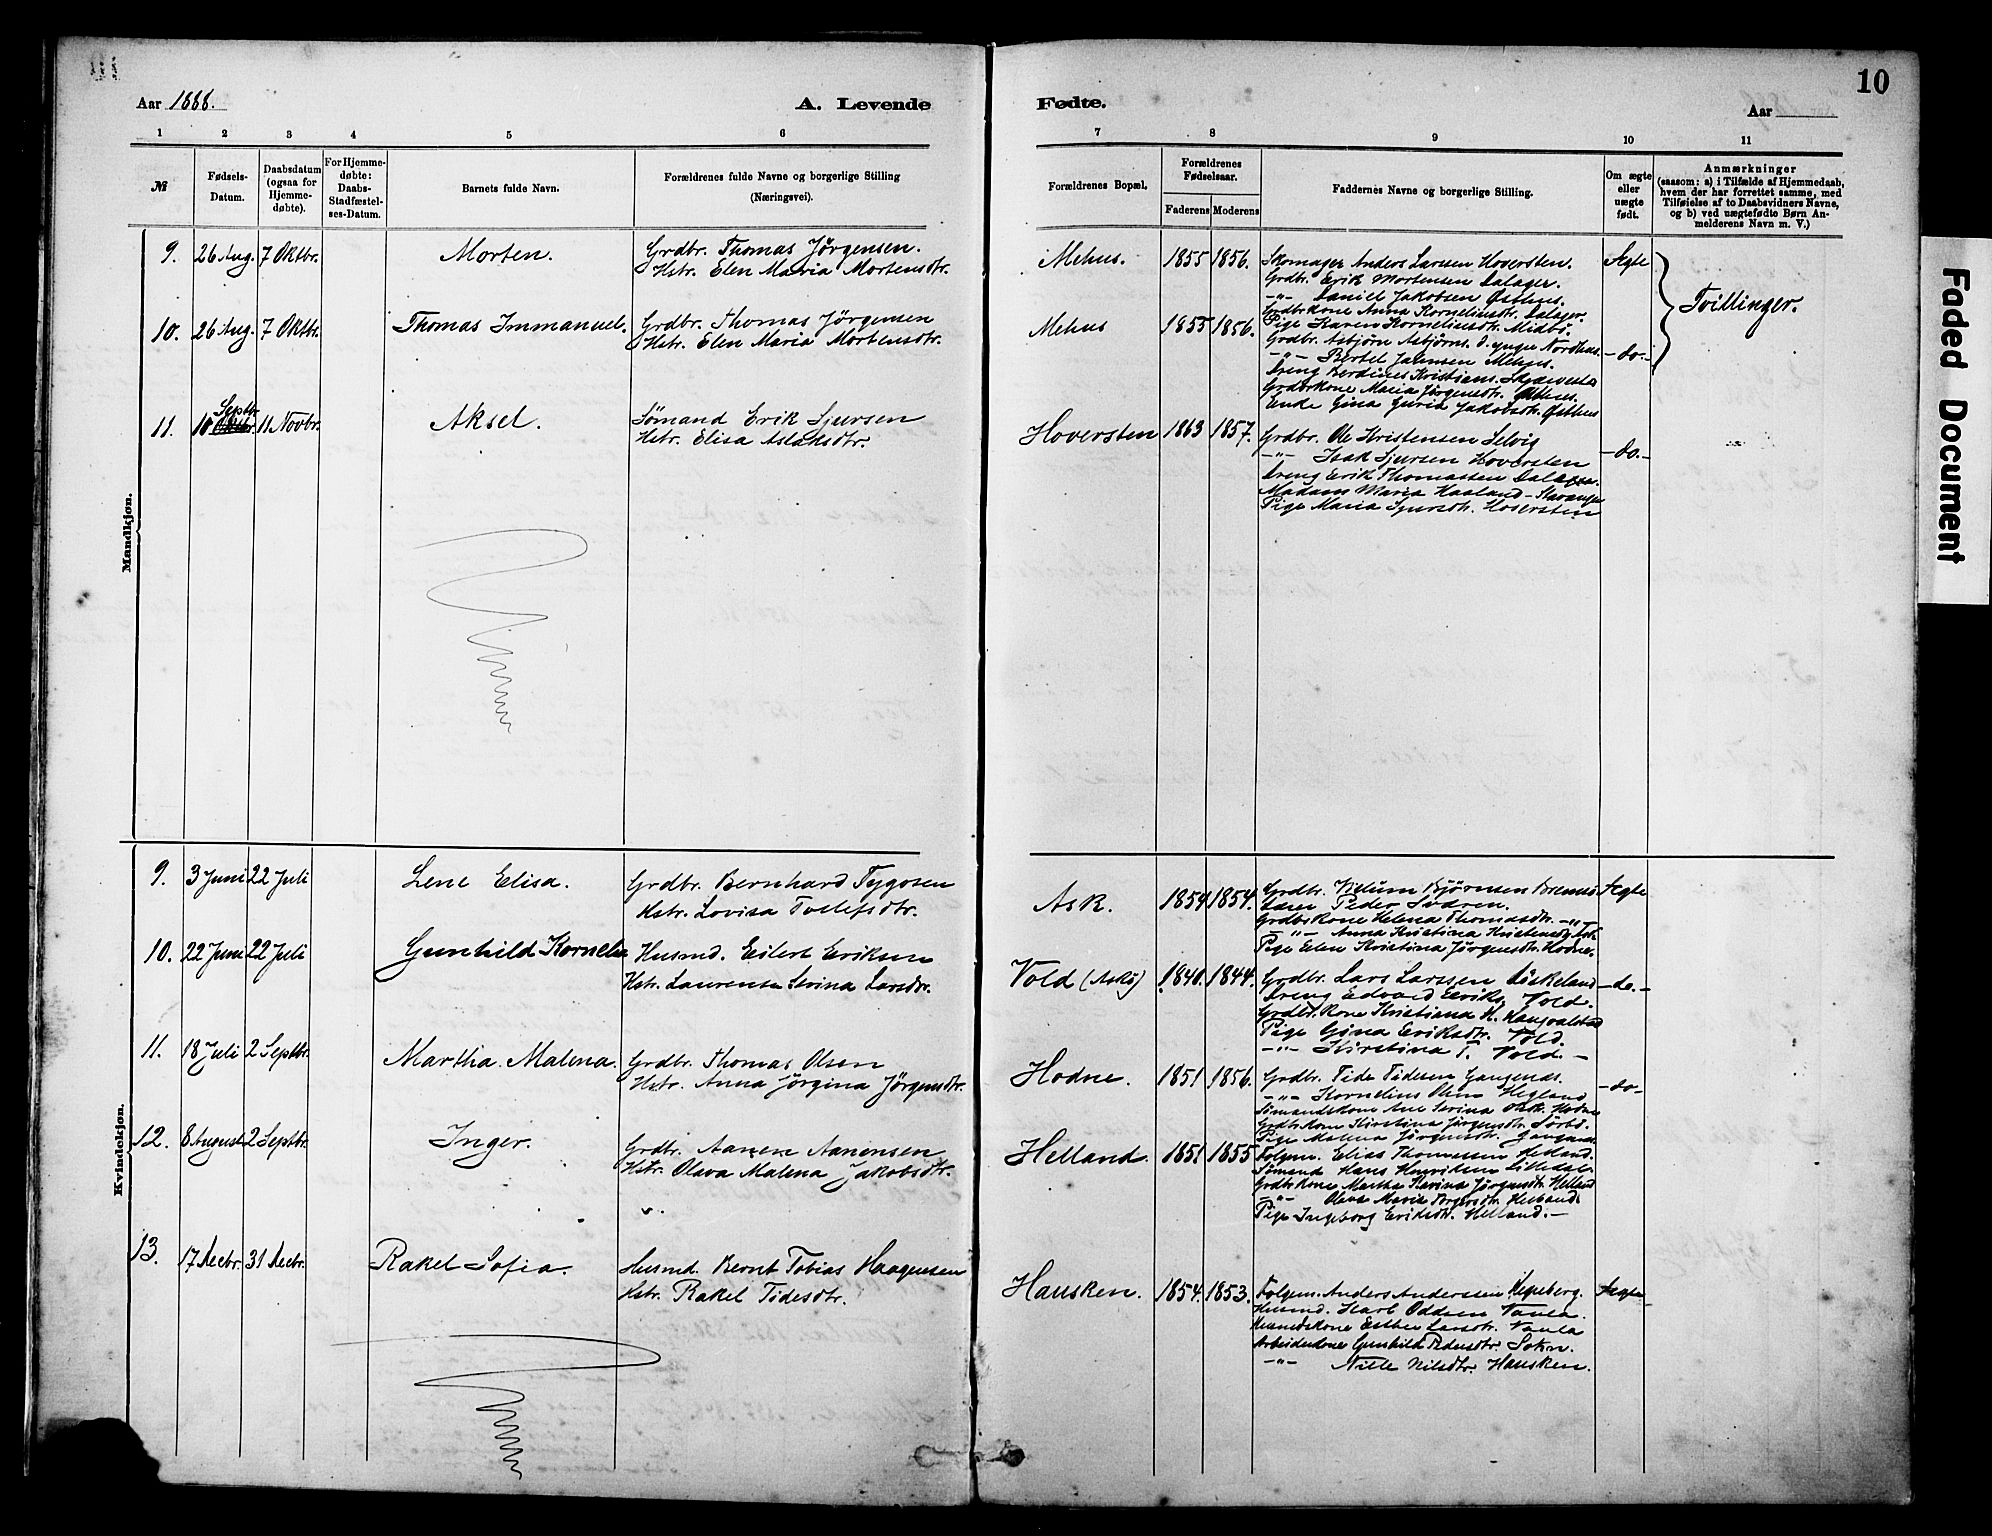 10
Aar 1888.
A. Levende
Fødte.
Aar
1 2 3 4 5 6
7 8 9 10 11
№
Fødsels-
Datum.
Daabsdatum
(ogsaa for
Hjemme-
døbte).
For Hjemme-
døbte:
Daabs-
Stadfæstel-
ses-Datum.
Barnets fulde Navn.
Forældrenes fulde Navne og borgerlige Stilling
(Næringsvei).
Forældrenes Bopæl.
Forældrenes
Fødselsaar.
Faderens Moderens
Faddernes Navne og borgerlige Stilling.
Om ægte
eller
uægte
født.
Anmærkninger
(saasom: a) i Tilfælde af Hjemmedaab,
hvem der har forrettet samme, med
Tilføielse af to Daabsvidners Navne,
og b) ved uægtefødte Børn An-
melderens Navn m. V.)
Mandkjøn.
9. 26 Aug. 7 Oktbr. Morten.
Grdbr. Thomas Jørgensen.
Hstr. Elen Maria Mortensdtr.
Mehus. 1855 1856.
Skomager Anders Larsen Hoversten.
Grdbr. Erik Mortensen Dalager.
-"- Daniel Jakobsen Østhus.
Grdbrkone Anna Korneliusdtr. Dalager.
Pige Karen Korneliusdtr. Midbø.
Ægte
Tvillinger.
10. 26 Aug. 7 Oktbr. Thomas Immanuel.
Grdbr. Thomas Jørgensen
Hstr. Elen Maria Mortensdtr.
Mehus 1855 1856.
Grdbr. Asbjørn Asbjørns. d. yngre Nordhus.
-"- Bertel Mehus.
Dreng Berdines Kristians.
Grdbrkone Maria Jørgensdtr. Østhus.
Enke Gina Guria Jakobsdtr. Østhus
-do.-
11. 10 Septbr. 11 Novbr. Aksel.
Sømand Erik Sjursen
Hstr. Elisa Aslaksdtr.
Hoversten 1863 1857.
Grdbr. Ole Kristensen Selvig
-"- Isak Sjursen Hoversten
Dreng Erik Thomassen Dalager.
Madam Maria Haaland - Stavanger
Pige Maria Sjursdtr. Hoversten
-do.-
Kvindekjøn.
9. 3 Juni 22 Juli Lene Elisa.
Grdbr. Bernhard Tygesen
Hstr. Lovisa Tollefsdtr.
Ask. 1854 1854.
Grdbr. Bjørnsen
Lærer Peder
Grdbrkone Helena Thomasdtr. -"-
-"- Anna Kristina Kristensdtr. Ask
Pige Elen Kristina Jørgensdtr. Hodne.
Ægte
10. 22 Juni 22 Juli Gunhild Kornelia
Husmd. Eilert Eriksen
Hstr. Laurense Serina Larsdtr.
Vold (Askø) 1840. 1844.
Grdbr. Lars Larssen Eskeland
Dreng Edvard Eriks. Vold.
Grdbr. kone Kristiana H. Haugvalstad
Pige Gina Eriksdtr. Vold.
-"- Kirstina T. Vold.-
-do.-
11. 18 Juli 2 Septbr. Martha Malena.
Grdbr. Thomas Olsen
Hstr. Anna Jørgina Jørgensdtr.
Hodne. 1851 1856.
Grdbr. Tide Tidesen
-"- Kornelius Olsen Hegland
Sømandskone Ane Serina Olsdtr. Hodne
Grdbrkone Kirstina Jørgensdtr. Sørbø.
Pige Malena Jørgensdtr.
-do-
12. 8 August 2 Septbr. Inger.
Grdbr. Aanen Aanensen
Hstr. Olava Malena Jakobsdtr.
Helland. 1851 1855
Folgem. Elias Thomassen Helland.
Sømand Hans Henriksen Lilledal.
Grdbrkone Martha Karina Jørgensdtr. Helland
-"- Olava Maria Torgersdtr. Helland.
Pige Ingeborg Eriksdtr. Helland.-
13. 17 Decbr. 31 Decbr. Rakel Sofia.
Husmd. Bernt Tobias Haagensen
Hstr. Rakel Tidesdtr.
Hausken. 1854. 1853.
Folgem. Anders Anderssen
Husmd. Karl Oddsen Vaula.
Husmdskone Esther Larsdtr. Vaula
Arbeiderkone Gunhild Pedersdtr. Sokn.
-"- Nille Nilsdtr. Hausken.
Ægte
Faded Document